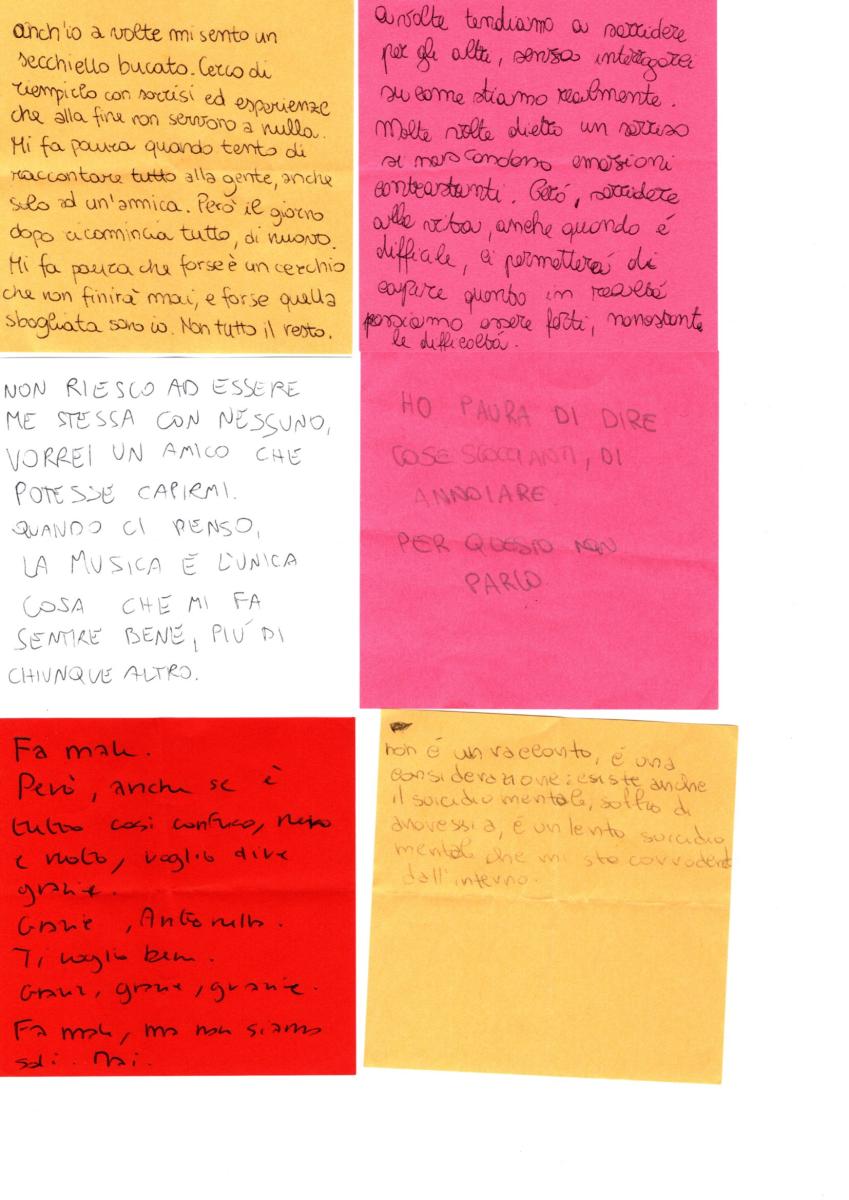 anch'io a volte mi sento un
secchiello bucato. Cerco di
riempirlo con sorrisi ed esperienze
che alla fine non servono a nulla.
Mi fa paura quando tento di
raccontare tutto alla gente, anche
solo ad un'amica. Però il giorno
dopo ricomincia tutto, di nuovo.
Mi fa paura che forse è un cerchio
che non finirà mai, e forse quella
sbagliata sono io. Non tutto il resto.
a volte tendiamo a sorridere
per gli altri, senza interrogarci
su come stiamo realmente.
Molte volte dietro un sorriso
si nascondono emozioni
contrastanti. Però, sorridere
alla vita, anche quando é
difficile, ci permetterá di
capire quanto in realtá
possiamo essere forti, nonostante
le difficoltá.
NON RIESCO AD ESSERE
ME STESSA CON NESSUNO,
VORREI UN AMICO CHE
POTESSE CAPIRMI.
QUANDO CI PENSO,
LA MUSICA E L'UNICA
COSA CHE MI FA
SENTIRE BENE, PIU' DI
CHIUNQUE ALTRO.
HO PAURA DI DIRE
COSE SCOCCIANTI, DI
ANNOIARE
PER QUESTO NON
PARLO
Fa male.
Però, anche se è
tutto così confuso, nero
e vuoto, voglio dire
grazie.
Grazie, Antonella.
Ti voglio bene.
Grazie, grazie, grazie.
Fa male, ma non siamo
soli. Mai.
non é un racconto, é una
considerazione: esiste anche
il suicidio mentale, soffro di
anoressia, é un lento suicidio
mentale che mi sta corrodendo
dall'interno.